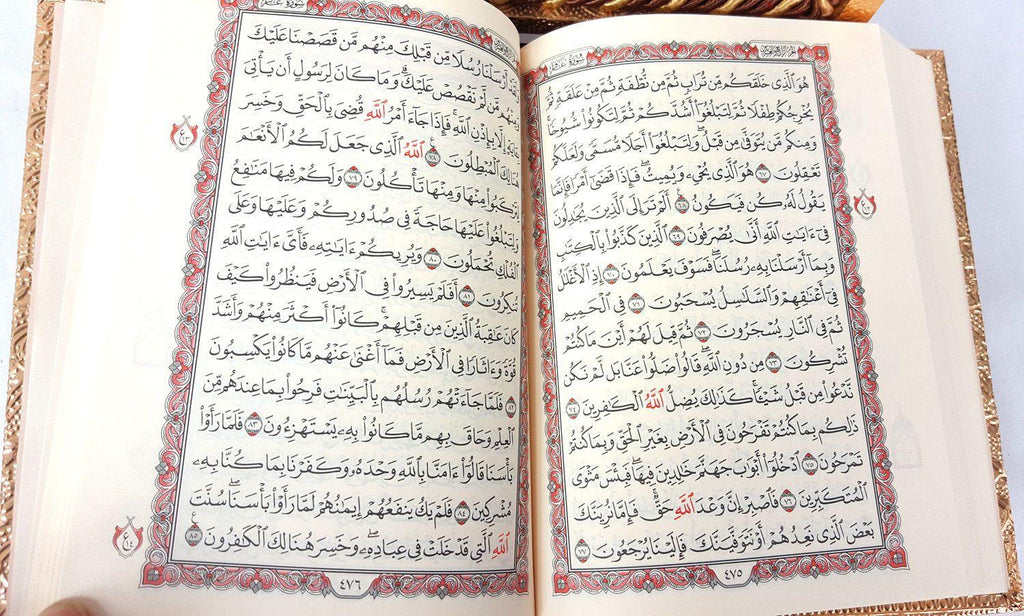 سُورَةُ غَافِرٍ
هُوَ ٱلَّذِى خَلَقَكُم مِّن تُرَابٍ ثُمَّ مِن نُّطْفَةٍ ثُمَّ مِنْ عَلَقَةٍ ثُمَّ
يُخْرِجُكُمْ طِفْلًا ثُمَّ لِتَبْلُغُوٓا۟ أَشُدَّكُمْ ثُمَّ لِتَكُونُوا۟ شُيُوخًا ۚ
وَمِنكُم مَّن يُتَوَفَّىٰ مِن قَبْلُ ۖ وَلِتَبْلُغُوٓا۟ أَجَلًا مُّسَمًّى وَلَعَلَّكُمْ
تَعْقِلُونَ ٦٧ هُوَ ٱلَّذِى يُحْىِۦ وَيُمِيتُ ۖ فَإِذَا قَضَىٰٓ أَمْرًا فَإِنَّمَا
يَقُولُ لَهُۥ كُن فَيَكُونُ ٦٨ أَلَمْ تَرَ إِلَى ٱلَّذِينَ يُجَٰدِلُونَ
فِىٓ ءَايَٰتِ ٱللَّهِ أَنَّىٰ يُصْرَفُونَ ٦٩ ٱلَّذِينَ كَذَّبُوا۟ بِٱلْكِتَٰبِ
وَبِمَآ أَرْسَلْنَا بِهِۦ رُسُلَنَا ۖ فَسَوْفَ يَعْلَمُونَ ٧٠ إِذِ ٱلْأَغْلَٰلُ
فِىٓ أَعْنَٰقِهِمْ وَٱلسَّلَٰسِلُ يُسْحَبُونَ ٧١ فِى ٱلْحَمِيمِ
ثُمَّ فِى ٱلنَّارِ يُسْجَرُونَ ٧٢ ثُمَّ قِيلَ لَهُمْ أَيْنَ مَا كُنتُمْ
تُشْرِكُونَ ٧٣ مِن دُونِ ٱللَّهِ ۖ قَالُوا۟ ضَلُّوا۟ عَنَّا بَل لَّمْ نَكُن
نَّدْعُوا۟ مِن قَبْلُ شَيْـًٔا ۚ كَذَٰلِكَ يُضِلُّ ٱللَّهُ ٱلْكَٰفِرِينَ ٧٤
ذَٰلِكُم بِمَا كُنتُمْ تَفْرَحُونَ فِى ٱلْأَرْضِ بِغَيْرِ ٱلْحَقِّ وَبِمَا كُنتُمْ
تَمْرَحُونَ ٧٥ ٱدْخُلُوٓا۟ أَبْوَٰبَ جَهَنَّمَ خَٰلِدِينَ فِيهَا ۖ فَبِئْسَ مَثْوَى
ٱلْمُتَكَبِّرِينَ ٧٦ فَٱصْبِرْ إِنَّ وَعْدَ ٱللَّهِ حَقٌّ ۚ فَإِمَّا نُرِيَنَّكَ
بَعْضَ ٱلَّذِى نَعِدُهُمْ أَوْ نَتَوَفَّيَنَّكَ فَإِلَيْنَا يُرْجَعُونَ ٧٧
٤٧٥
سُورَةُ غَافِرٍ
وَلَقَدْ أَرْسَلْنَا رُسُلًا مِّن قَبْلِكَ مِنْهُم مَّن قَصَصْنَا عَلَيْكَ
وَمِنْهُم مَّن لَّمْ نَقْصُصْ عَلَيْكَ ۗ وَمَا كَانَ لِرَسُولٍ أَن يَأْتِىَ
بِـَٔايَةٍ إِلَّا بِإِذْنِ ٱللَّهِ ۚ فَإِذَا جَآءَ أَمْرُ ٱللَّهِ قُضِىَ بِٱلْحَقِّ وَخَسِرَ
هُنَالِكَ ٱلْمُبْطِلُونَ ٧٨ ٱللَّهُ ٱلَّذِى جَعَلَ لَكُمُ ٱلْأَنْعَٰمَ
لِتَرْكَبُوا۟ مِنْهَا وَمِنْهَا تَأْكُلُونَ ٧٩ وَلَكُمْ فِيهَا مَنَٰفِعُ
وَلِتَبْلُغُوا۟ عَلَيْهَا حَاجَةً فِى صُدُورِكُمْ وَعَلَيْهَا وَعَلَى
ٱلْفُلْكِ تُحْمَلُونَ ٨٠ وَيُرِيكُمْ ءَايَٰتِهِۦ فَأَىَّ ءَايَٰتِ ٱللَّهِ
تُنكِرُونَ ٨١ أَفَلَمْ يَسِيرُوا۟ فِى ٱلْأَرْضِ فَيَنظُرُوا۟ كَيْفَ
كَانَ عَٰقِبَةُ ٱلَّذِينَ مِن قَبْلِهِمْ ۚ كَانُوٓا۟ أَكْثَرَ مِنْهُمْ وَأَشَدَّ
قُوَّةً وَءَاثَارًا فِى ٱلْأَرْضِ فَمَآ أَغْنَىٰ عَنْهُم مَّا كَانُوا۟ يَكْسِبُونَ
٨٢ فَلَمَّا جَآءَتْهُمْ رُسُلُهُم بِٱلْبَيِّنَٰتِ فَرِحُوا۟ بِمَا عِندَهُم مِّنَ
ٱلْعِلْمِ وَحَاقَ بِهِم مَّا كَانُوا۟ بِهِۦ يَسْتَهْزِءُونَ ٨٣ فَلَمَّا رَأَوْا۟
بَأْسَنَا قَالُوٓا۟ ءَامَنَّا بِٱللَّهِ وَحْدَهُۥ وَكَفَرْنَا بِمَا كُنَّا بِهِۦ
مُشْرِكِينَ ٨٤ فَلَمْ يَكُ يَنفَعُهُمْ إِيمَٰنُهُمْ لَمَّا رَأَوْا۟ بَأْسَنَا ۖ سُنَّتَ
ٱللَّهِ ٱلَّتِى قَدْ خَلَتْ فِى عِبَادِهِۦ ۖ وَخَسِرَ هُنَالِكَ ٱلْكَٰفِرُونَ ٨٥
٤٧٦